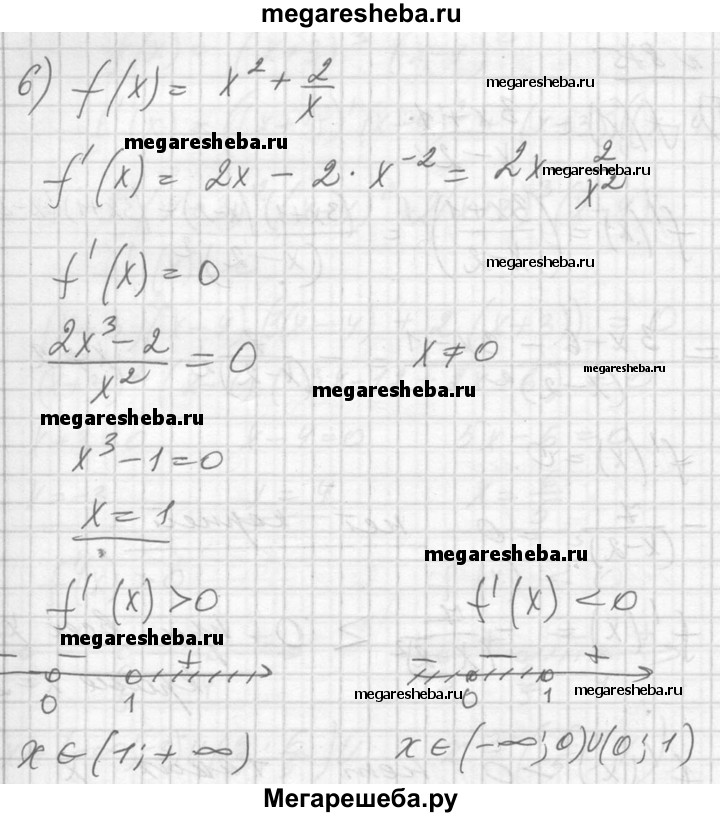 megaresheba.ru
б) f(x) = x² + 2/x
megaresheba.ru
megaresheba.ru
f'(x) = 2x - 2 · x⁻² = 2x - 2/x²
megaresheba.ru
f'(x) = 0
megaresheba.ru
(2x³ - 2)/x² = 0 x ≠ 0
megaresheba.ru
megaresheba.ru
megaresheba.ru
x³ - 1 = 0
x = 1
megaresheba.ru
f'(x) > 0 f'(x) < 0
megaresheba.ru
- - + - - +
0 1 0 1
megaresheba.ru
megaresheba.ru
x ∈ (1; + ∞) x ∈ (-∞; 0) ∪ (0; 1)
Мегарешеба.ру